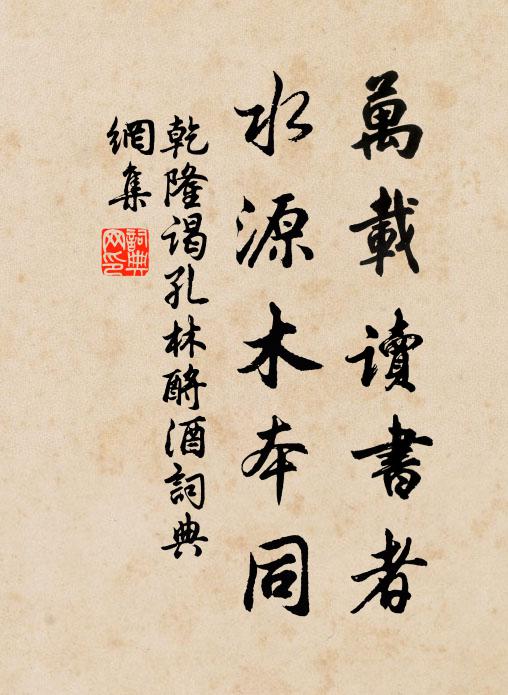 萬載讀書者
水源木本同
乾隆謁孔林酹酒詞典
網集
詞典
网印